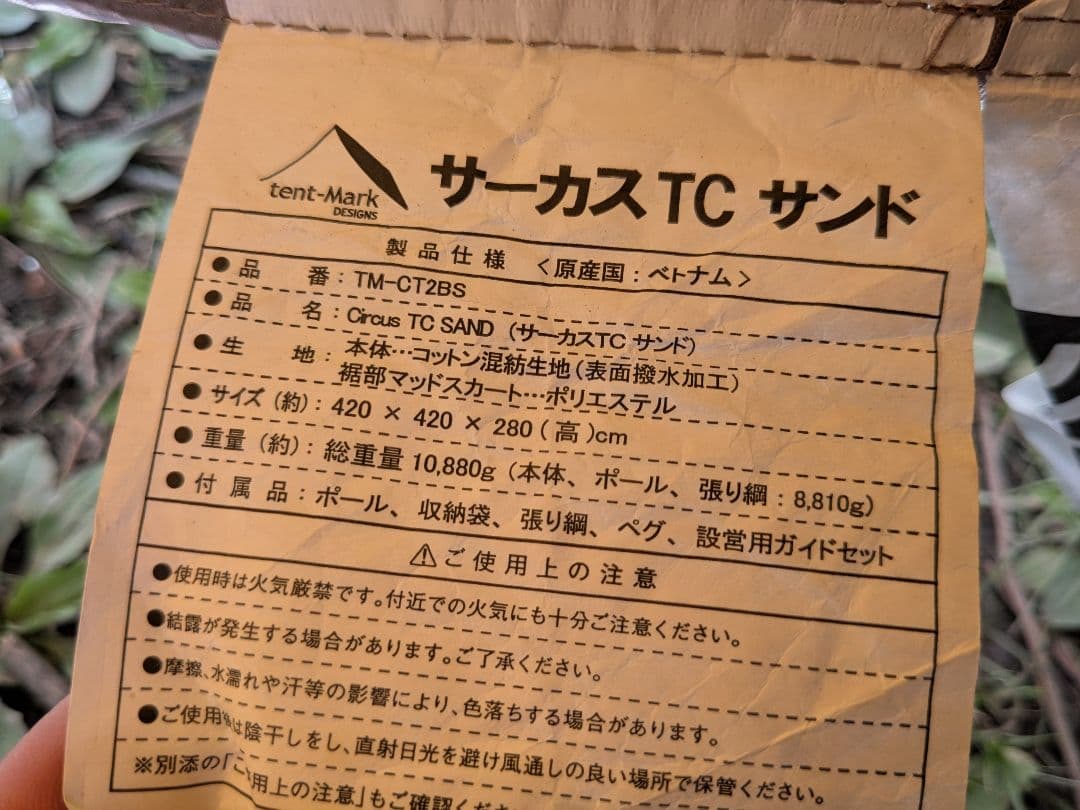 tent-Mark
DESIGNS
サーカスTC サンド
製品仕様 <原産国：ベトナム>
●品番：TM-CT2BS
●品名：Circus TC SAND（サーカスTC サンド）
●生地：本体…コットン混紡生地（表面撥水加工）
裾部マッドスカート…ポリエステル
●サイズ（約）：420 × 420 × 280（高）cm
●重量（約）：総重量 10,880g（本体、ポール、張り綱：8,810g）
●付属品：ポール、収納袋、張り綱、ペグ、設営用ガイドセット
⚠ご使用上の注意
●使用時は火気厳禁です。付近での火気にも十分ご注意ください。
●結露が発生する場合があります。ご了承ください。
●摩擦、水濡れや汗等の影響により、色落ちする場合があります。
●ご使用後は陰干しをし、直射日光を避け風通しの良い場所で保管ください。
※別添の「ご使用上の注意」もご確認くださ